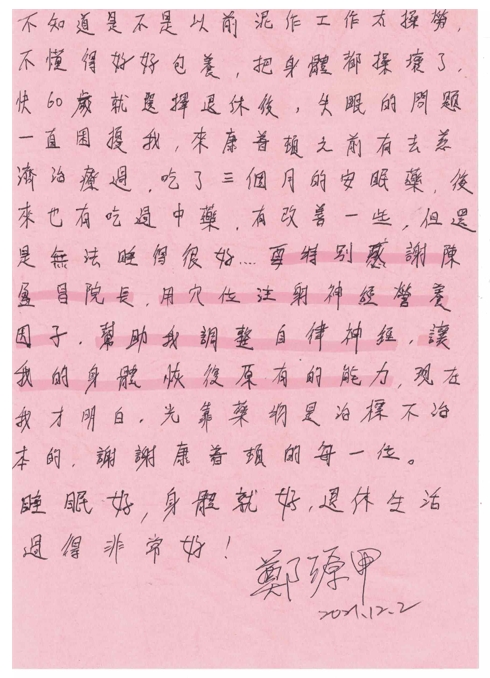 不知道是不是以前泥作工作太操勞,
不懂得好好包養,把身體都操壞了.
快60歲就選擇退休後,失眠的問題
一直困擾我,來康普頓之前有去慈
濟治療過,吃了三個月的安眠藥,後
來也有吃過中藥,有改善一些,但還
是無法睡得很好....要特別感謝陳
盈昌院長,用穴位注射神經營養
因子.幫助我調整自律神經,讓
我的身體恢復原有的能力,現在
我才明白.光靠藥物是治標不治
本的,謝謝康普頓的每一位。
睡眠好,身體就好,退休生活
過得非常好!
鄭源甲
2021.12.2